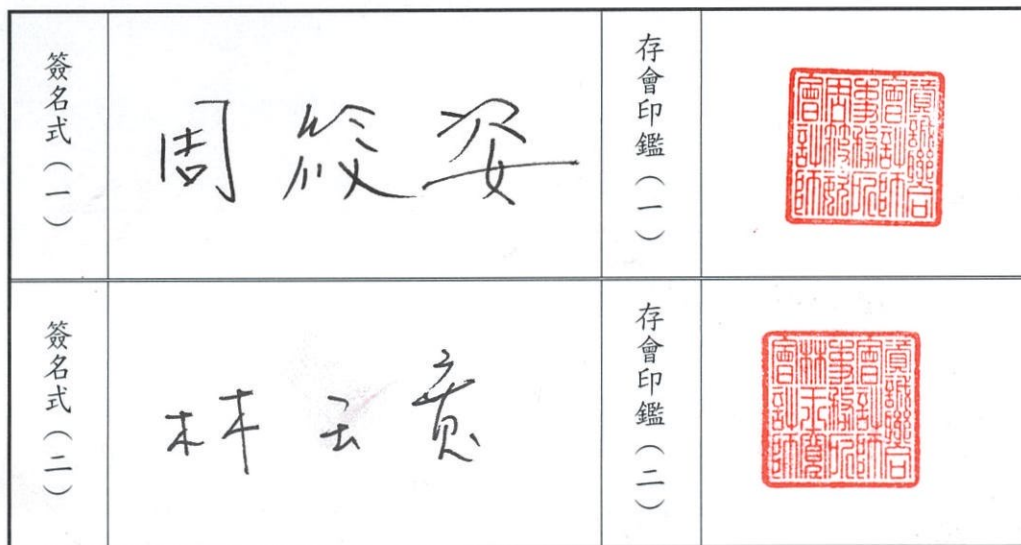 簽名式（一）
周筱姿
存會印鑑（一）
資誠聯合
會計師
事務所
周筱姿
會計師
簽名式（二）
林玉寬
存會印鑑（二）
資誠聯合
會計師
事務所
林玉寬
會計師